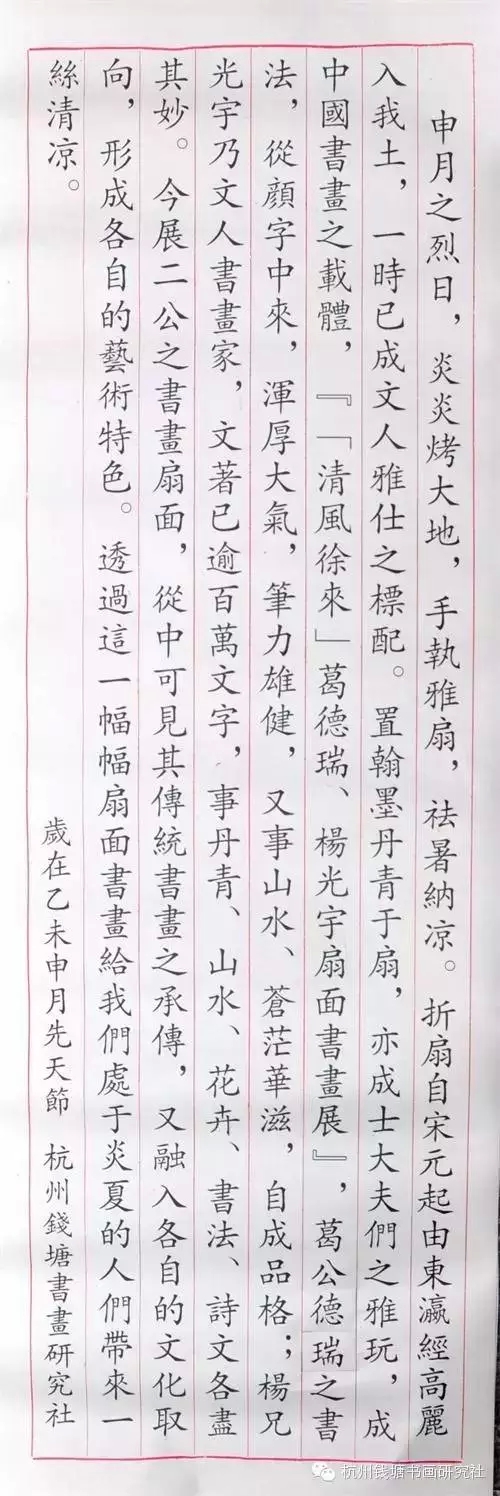 申月之烈日，炎炎烤大地，手執雅扇，祛暑納凉。折扇自宋元起由東瀛經高麗
入我土，一時已成文人雅仕之標配。置翰墨丹青于扇，亦成士大夫們之雅玩，成
中國書畫之載體，『「清風徐來」葛德瑞、楊光宇扇面書畫展』，葛公德瑞之書
法，從顔字中來，渾厚大氣，筆力雄健，又事山水、蒼茫華滋，自成品格；楊兄
光宇乃文人書畫家，文著已逾百萬文字，事丹青、山水、花卉、書法、詩文各盡
其妙。今展二公之書畫扇面，從中可見其傳統書畫之承傳，又融入各自的文化取
向，形成各自的藝術特色。透過這一幅幅扇面書畫給我們處于炎夏的人們帶來一
絲清凉。
歲在乙未申月先天節 杭州錢塘書畫研究社
杭州钱塘书画研究社